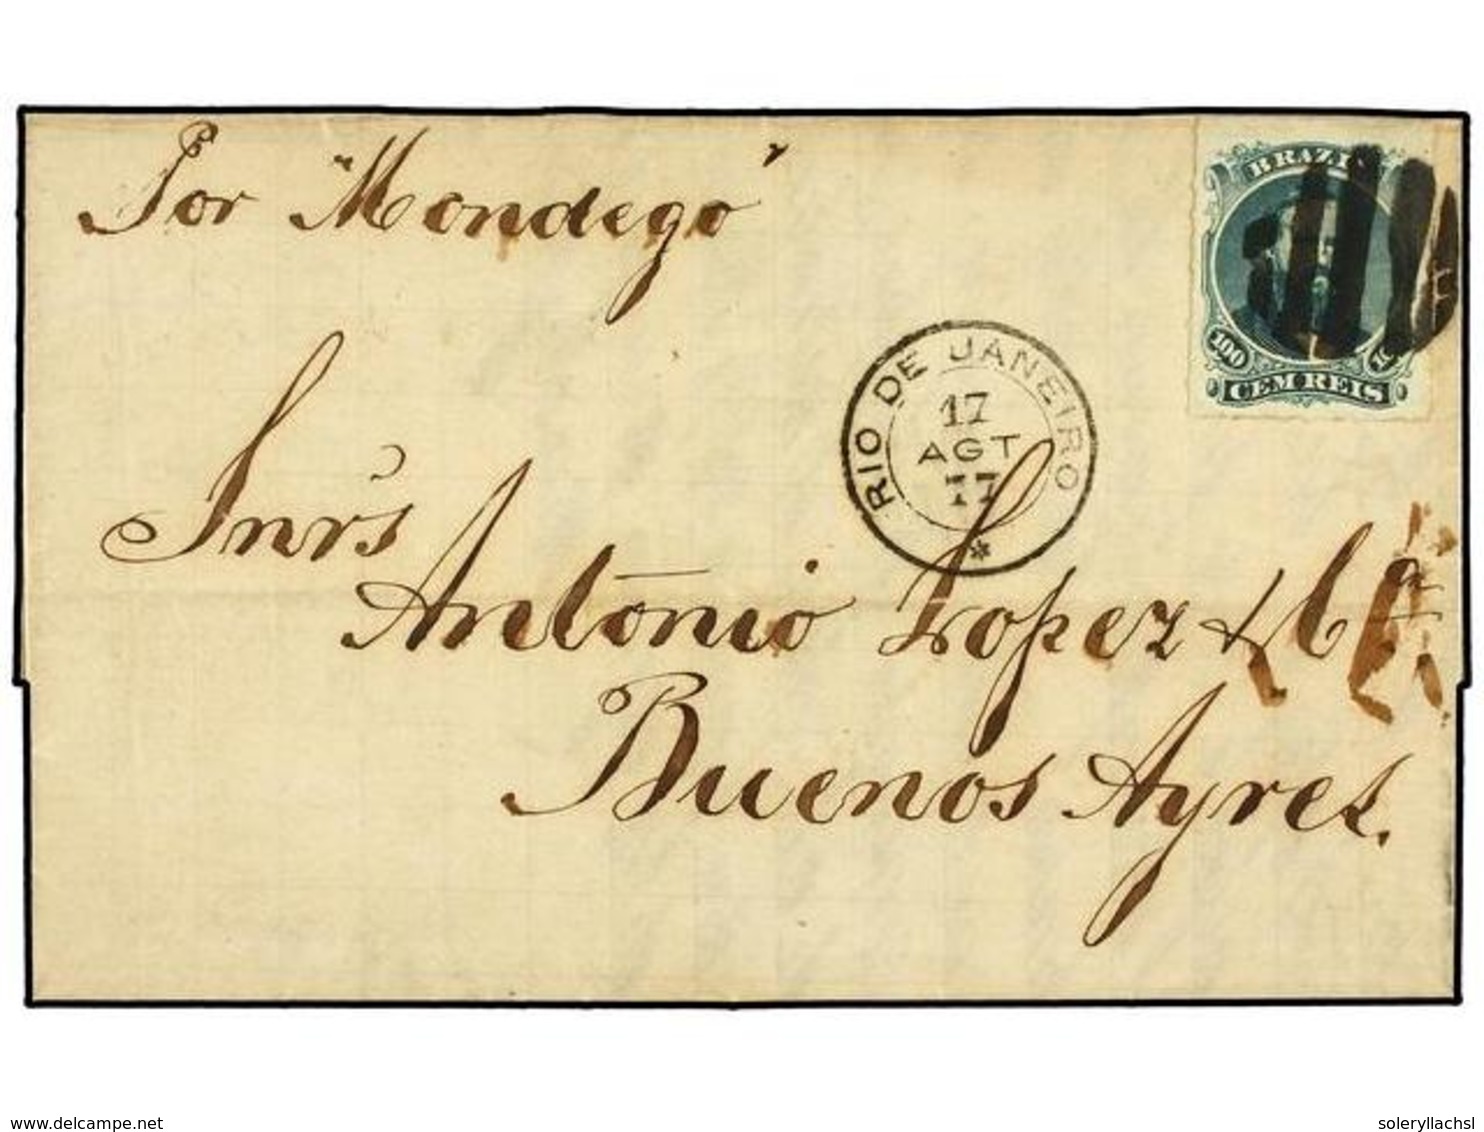 Por "Mondego"
BRAZIL
100
CEM REIS
RIO DE JANEIRO
17
AGT
77
*
Snrs
Antonio Lopez & Ca
Buenos Ayres.
delcampe.net
soleryllachsl